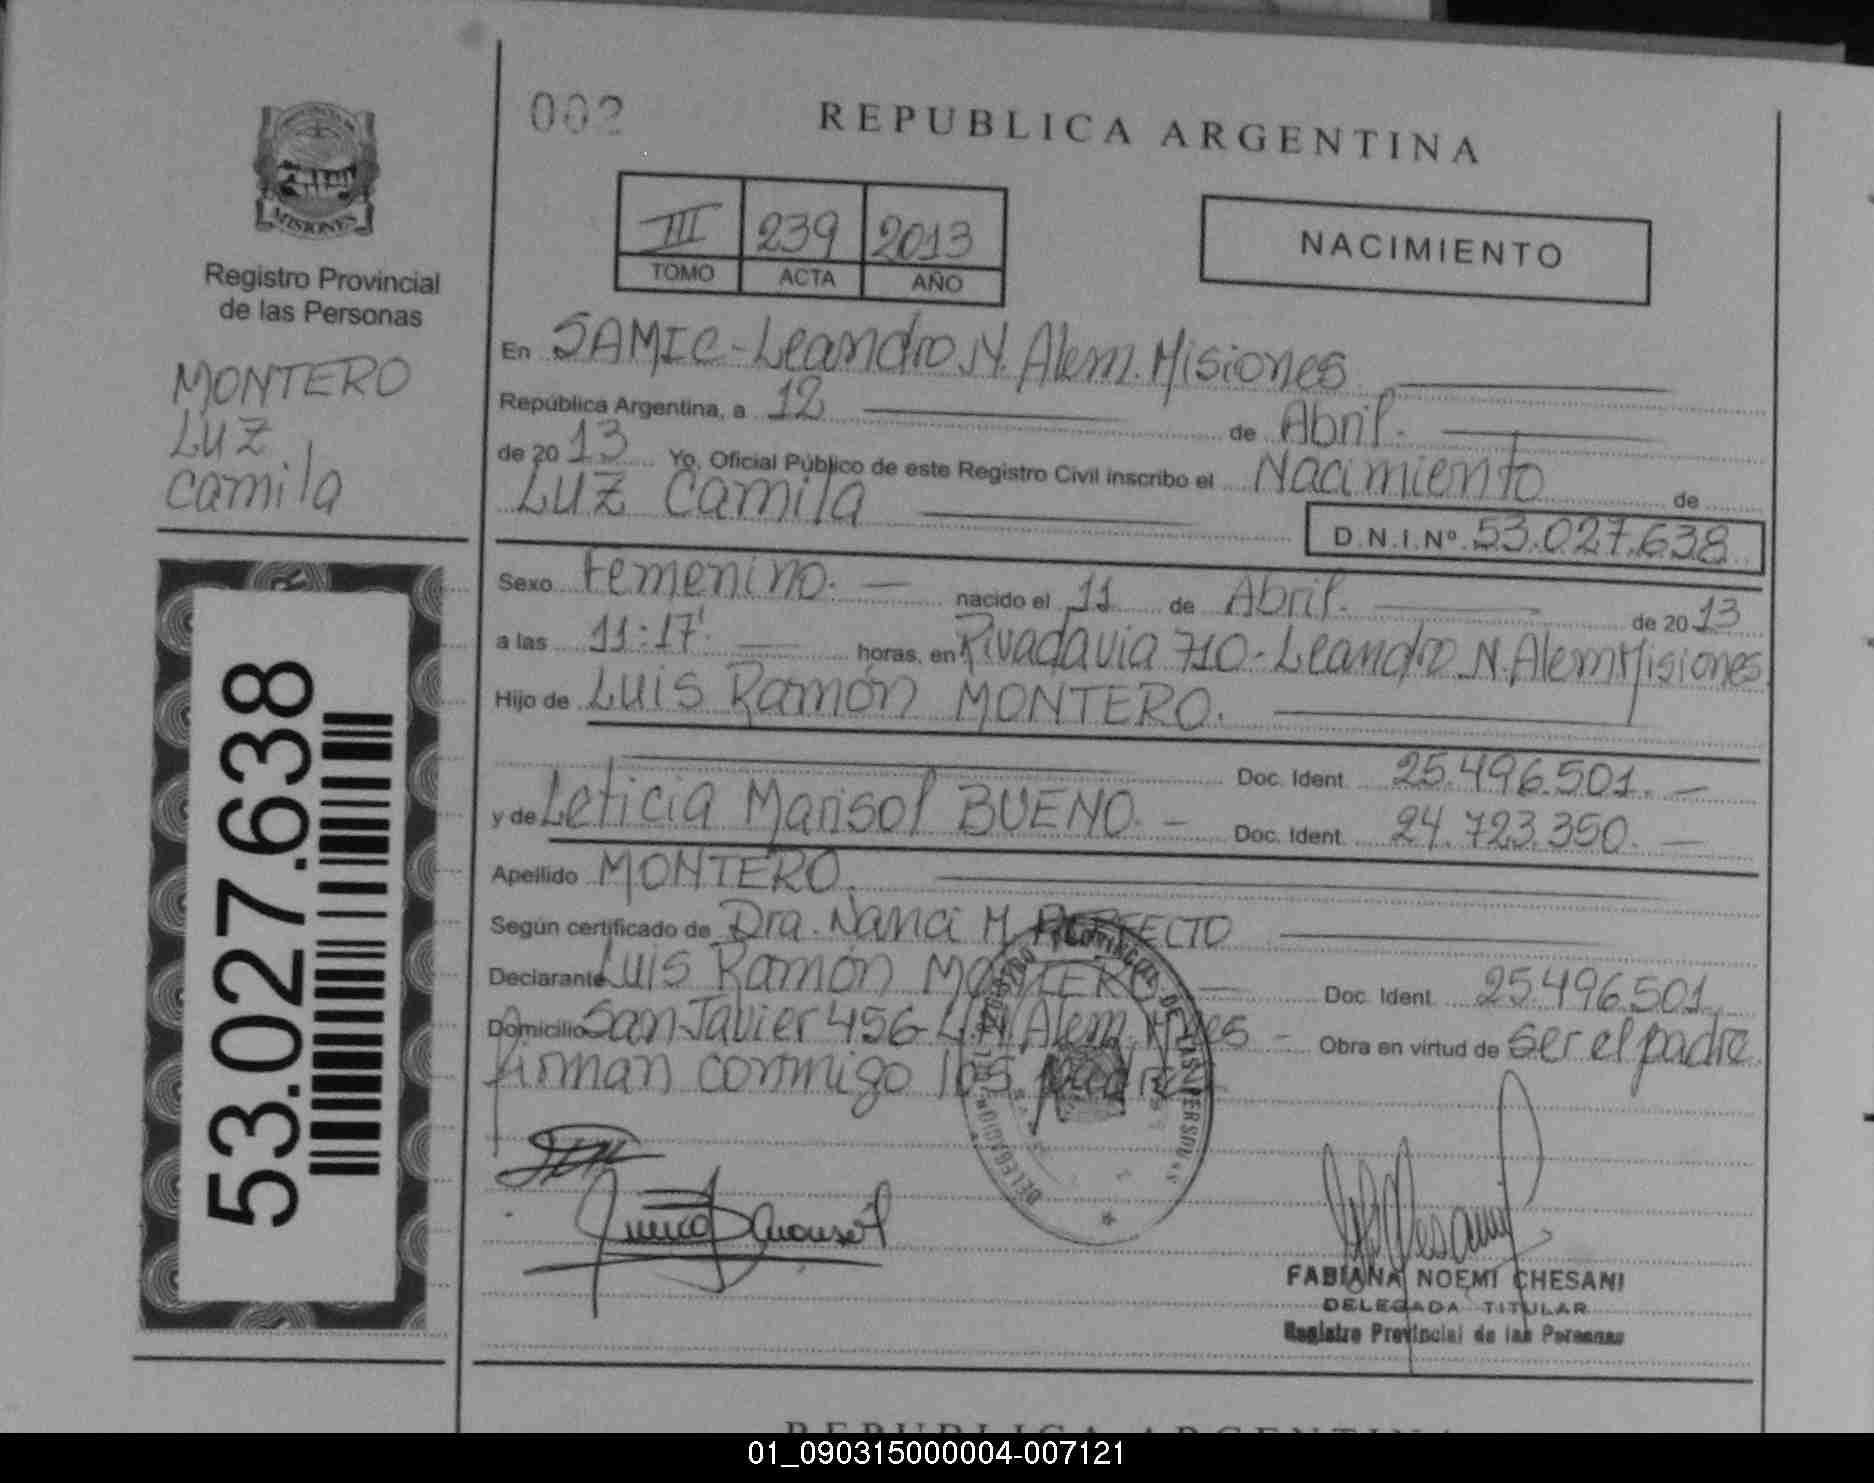 002
REPUBLICA ARGENTINA
MISIONES
Registro Provincial
de las Personas
MONTERO
LUZ
Camila
53.027.638
III 239 2013
TOMO ACTA AÑO
NACIMIENTO
En SAMIC - Leandro N. Alem. Misiones
República Argentina, a 12 de Abril.
de 2013 Yo, Oficial Público de este Registro Civil inscribo el Nacimiento de
LUZ Camila
D.N.I.Nº 53.027.638
Sexo Femenino. nacido el 11 de Abril. de 2013
a las 11:17' horas, en Rivadavia 710 - Leandro N. Alem Misiones
Hijo de Luis Ramón MONTERO.
Doc. Ident. 25.496.501.
y de Leticia Marisol BUENO. Doc. Ident. 24.723.350.
Apellido MONTERO.
Según certificado de Dra. Nanci M. PERFECTO
Declarante Luis Ramón MONTERO Doc. Ident. 25.496.501
Domicilio San Javier 456 L.N. Alem. Mnes Obra en virtud de ser el padre
firman conmigo los padres
PROVINCIAL DE LAS PERSONAS
DELEGACION
FABIANA NOEMI CHESANI
DELEGADA TITULAR
Registro Provincial de las Personas
REPUBLICA ARGENTINA
01_090315000004-007121